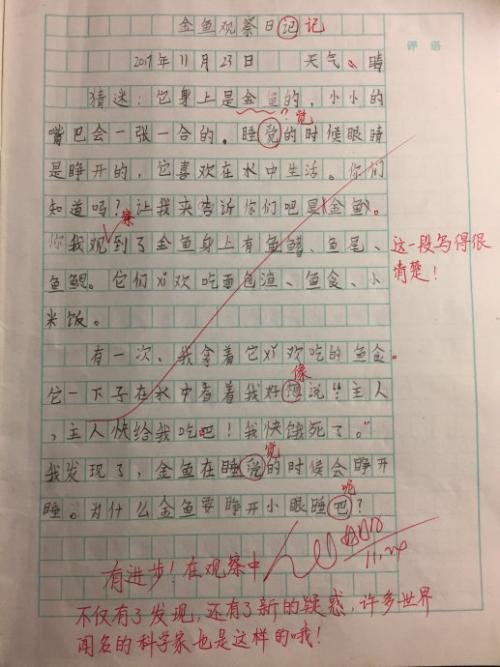 金鱼观察日记 记
评语
2017年11月23日 天气：晴
猜迷：它身上是金鱼的，小小的
？觉
嘴巴会一张一合的。睡觉的时候眼睛
是睁开的，它喜欢在水中生活。你们
知道吗？让我来告诉你们吧是(金鱼)。
察
你我观到了金鱼身上有鱼鳍、鱼尾、
鱼鳃。它们xǐ欢吃面包渣、鱼食、小
米饭。
这一段写得很
清楚！
有一次，我拿着它xǐ欢吃的鱼食。
像
它一下子在水中看着我好想说“主人
，主人快给我吃吧！我快饿死了。”
觉
我发现了，金鱼在睡觉的时候会睁开
呢
睡。为什么金鱼要睁开小眼睡吧？
11.24
有进步！在观察中
不仅有了发现，还有了新的疑惑，许多世界
闻名的科学家也是这样的哦！